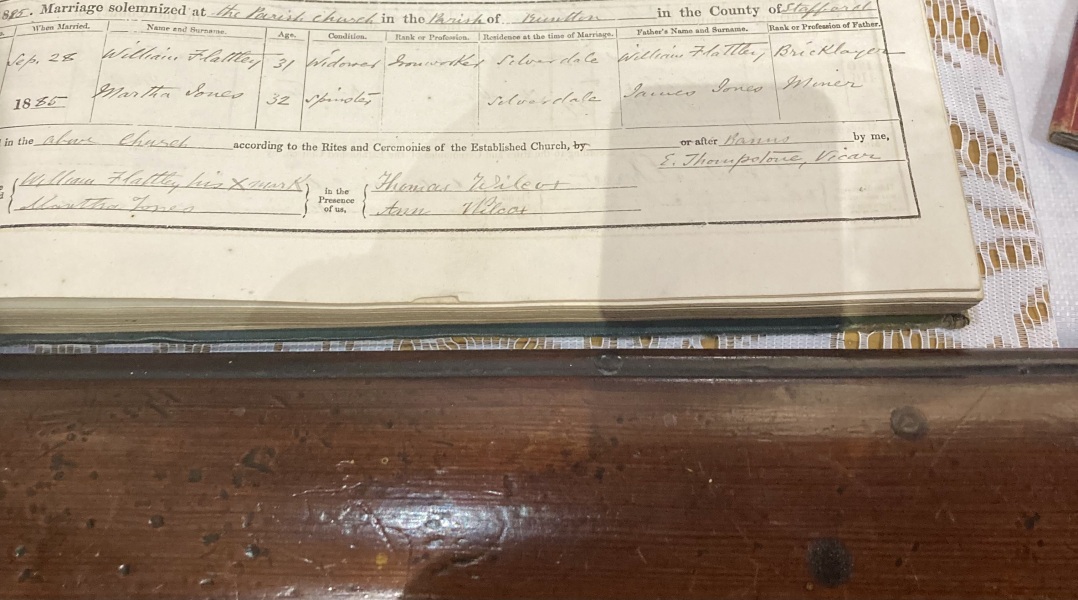 885. Marriage solemnized at the Parish church in the Parish of in the County of Stafford
When Married. Name and Surname. Age. Condition. Rank or Profession. Residence at the time of Marriage. Father's Name and Surname. Rank or Profession of Father.
Sep. 28 William Flattley 31 Widower Ironworker Silverdale William Flattley Bricklayer
1885 Martha Jones 32 Spinster Silverdale James Jones Miner
in the above Church according to the Rites and Ceremonies of the Established Church, by or after Banns by me,
E. Thompstone, Vicar
William Flattley his X mark
Martha Jones
in the
Presence
of us,
Thomas Wilcox
Ann Wilcox